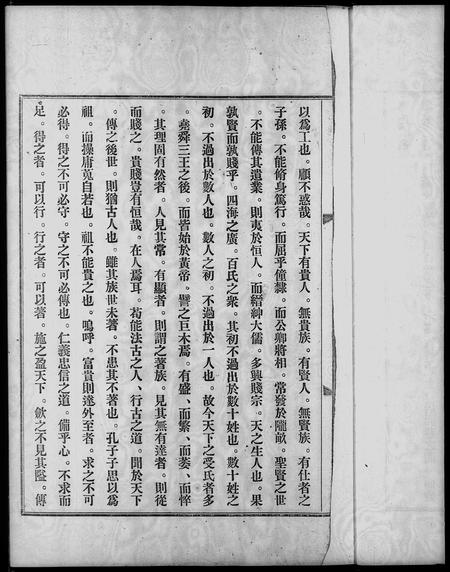 以爲工也。顧不惑哉。天下有貴人。無貴族。有賢人。無賢族。有仕者之
子孫。不能脩身篤行。而屈乎僮隸。而公卿將相。常發於隴畝。聖賢之世
。不能傳其遺業。則夷於恒人。而縉紳大儒。多興賤宗。天之生人也。果
孰賢而孰賤乎。四海之廣。百氏之衆。其初不過出於數十姓也。數十姓之
初。不過出於數人也。數人之初。不過出於一人也。故今天下之受氏者多
。堯舜三王之後。而皆始於黃帝。譬之巨木焉。有盛、而繁、而萎、而悴
。其理固有然者。人見其常。有顯者。則謂之著族。見其無有達者。則從
而賤之。貴賤豈有恒哉。在人焉耳。苟能法古之人、行古之道。聞於天下
。傳之後世。則猶古人也。雖其族世未著。不患其不著也。孔子子思以爲
祖。而操庸莧自若也。祖不能貴之也。嗚呼。富貴則達外至者。求之不可
必得。得之不可必守。守之不可必傳也。仁義忠信之道。備乎心。不求而
足。得之者。可以行。行之者。可以著。施之盈天下。歛之不見其隘。傳